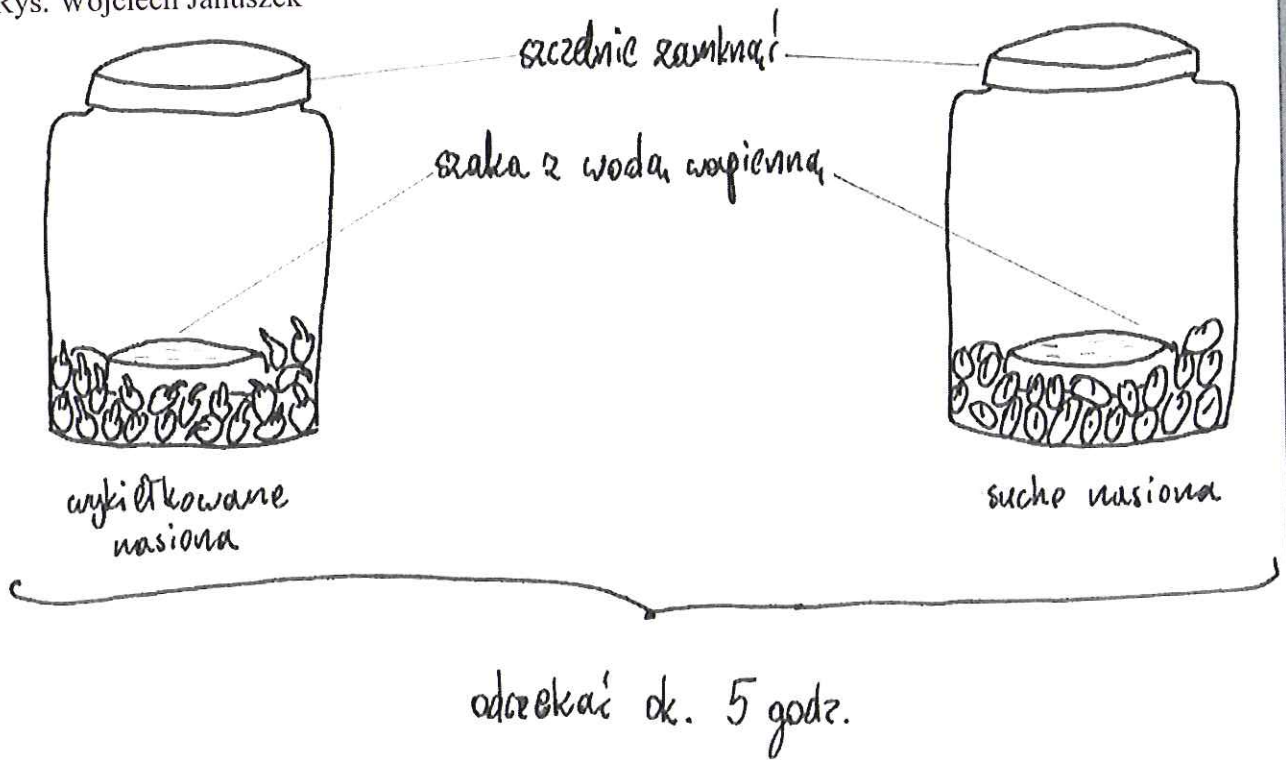 Rys. Wojciech Januszek
szczelnie zamknąć
szalka z wodą wapienną
wykiełkowane
nasiona
suche nasiona
odczekać ok. 5 godz.